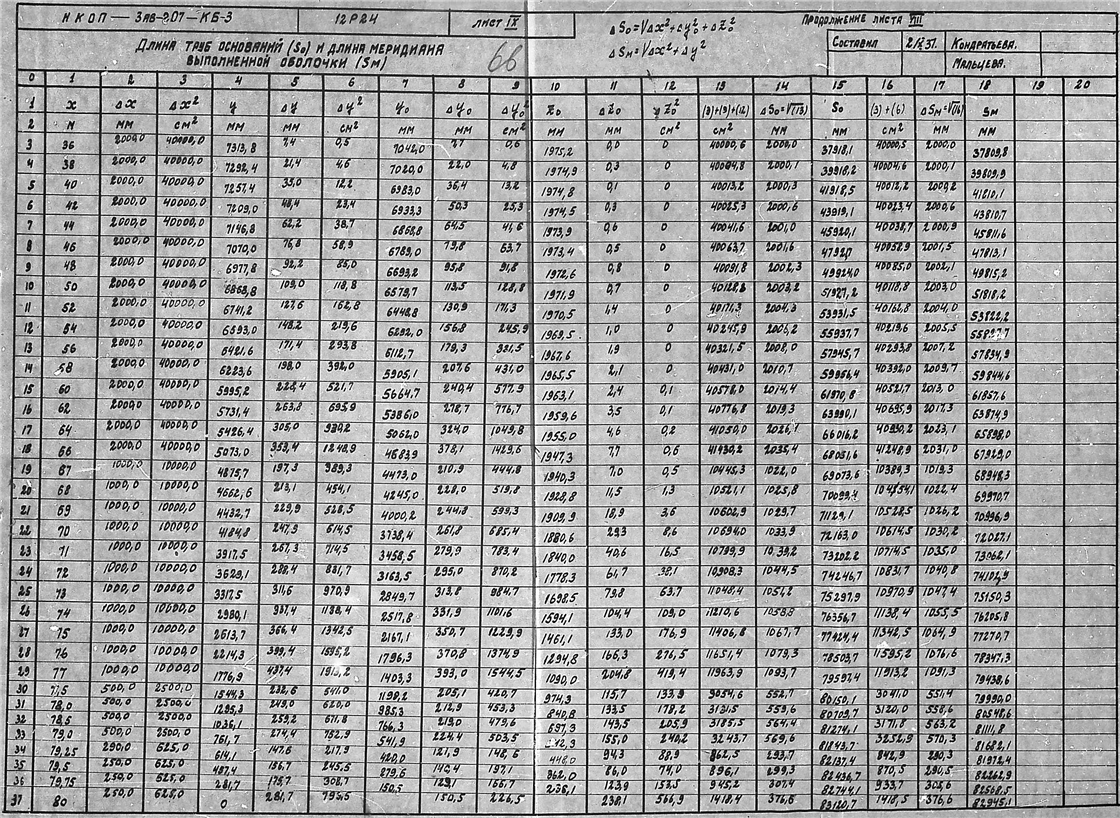 НКОП — Зав-207 — КБ-3 12Р24 лист IX
ΔS₀=√Δx²+Δy₀²+ΔZ₀²
ΔSм=√Δx²+Δy²
Продолжение листа VIII
Длина труб оснований (S₀) и длина меридиана
выполненной оболочки (Sм)
66
Составил Кондратьева.
Мальцева.
0 1 2 3 4 5 6 7 8 9 10 11 12 13 14 15 16 17 18 19 20
1 x Δx Δx² y Δy Δy² y₀ Δy₀ Δy₀² Z₀ ΔZ₀ (3)+(9)+(12) ΔS₀=√(13) S₀ (3)+(6) ΔSм=√(16) Sм
2 м мм см² мм мм см² мм мм см² мм мм см² см² мм мм см² мм мм
3 36 2000,0 40000,0 7313,8 0,5 7042,0 0,6 1975,2 0,0 0 40000,6 2000,0 37918,1 40000,5 2000,0 37809,8
4 38 2000,0 40000,0 7292,4 21,4 4,6 7020,0 22,0 4,8 1974,9 0,3 0 40004,8 2000,1 39918,2 40004,6 2000,1 39809,9
5 40 2000,0 40000,0 7257,4 35,0 12,2 6983,0 36,4 13,2 1974,8 0,1 0 40013,2 2000,3 41918,5 40012,2 2000,2 41810,1
6 42 2000,0 40000,0 7209,0 48,4 23,4 6933,3 50,3 25,3 1974,5 0,3 0 40025,3 2000,6 43919,1 40023,4 2000,6 43810,7
7 44 2000,0 40000,0 7146,8 62,2 38,7 6868,8 64,5 41,6 1973,9 0,6 0 40041,6 2001,0 45920,1 40038,7 2000,9 45811,6
8 46 2000,0 40000,0 7070,0 76,8 58,9 6789,0 79,8 63,7 1973,4 0,5 0 40063,7 2001,6 40058,9 2001,5 47813,1
9 48 2000,0 40000,0 6977,8 92,2 85,0 6693,2 95,8 91,8 1972,6 0,8 0 40091,8 2002,3 49924,0 40085,0 2002,1 49815,2
10 50 2000,0 40000,0 6868,8 109,0 118,8 6579,7 113,5 128,8 1971,9 0,7 0 40128,8 2003,2 51927,2 40118,8 2003,0 51818,2
11 52 2000,0 40000,0 6741,2 127,6 162,8 6448,8 130,9 171,3 1970,5 1,4 0 40171,3 2004,3 53931,5 40162,8 2004,0 53822,2
12 54 2000,0 40000,0 6593,0 148,2 219,6 6292,0 156,8 245,9 1969,5 1,0 0 40245,9 2006,2 55937,7 40219,6 2005,5 55827,7
13 56 2000,0 40000,0 6421,6 171,4 293,8 6112,7 179,3 321,5 1967,6 1,9 0 40321,5 2008,0 57945,7 40293,8 2007,2 57834,9
14 58 2000,0 40000,0 6223,6 198,0 392,0 5905,1 207,6 431,0 1965,5 2,1 0 40431,0 2010,7 59956,4 40392,0 2009,7 59844,6
15 60 2000,0 40000,0 5995,2 228,4 521,7 5664,7 240,4 577,9 1963,1 2,4 0,1 40578,0 2014,4 61970,8 40521,7 2013,0 61857,6
16 62 2000,0 40000,0 5731,4 263,8 695,9 5386,0 278,7 776,7 1959,6 3,5 0,1 40776,8 2019,3 63990,1 40695,9 2017,3 63874,9
17 64 2000,0 40000,0 5426,4 305,0 930,2 5062,0 324,0 1049,8 1955,0 4,6 0,2 41050,0 2026,1 66016,2 40930,2 2023,1 65898,0
18 66 2000,0 40000,0 5073,0 353,4 1248,9 4683,9 378,1 1429,6 1947,3 7,7 0,6 41430,2 2035,4 68051,6 41248,9 2031,0 67929,0
19 67 1000,0 10000,0 4875,7 197,3 389,3 4473,0 210,9 444,8 1940,3 7,0 0,5 10445,3 1022,0 69073,6 10389,3 1019,3 68948,3
20 68 1000,0 10000,0 4662,6 213,1 454,1 4245,0 228,0 519,8 1928,8 11,5 1,3 10521,1 1025,8 70099,4 10454,1 1022,4 69970,7
21 69 1000,0 10000,0 4432,7 229,9 528,5 4000,2 244,8 599,3 1909,9 18,9 3,6 10602,9 1029,7 71129,1 10528,5 1026,2 70996,9
22 70 1000,0 10000,0 4184,8 247,9 614,5 3738,4 261,8 685,4 1880,6 29,3 8,6 10694,0 1033,9 72163,0 10614,5 1030,2 72027,1
23 71 1000,0 10000,0 3917,5 267,3 714,5 3458,5 279,9 783,4 1840,0 40,6 16,5 10799,9 1039,22 73202,2 10714,5 1035,0 73062,1
24 72 1000,0 10000,0 3629,1 288,4 831,7 3163,5 295,0 870,2 1778,3 61,7 38,1 10908,3 1044,5 74246,7 10831,7 1040,8 74102,9
25 73 1000,0 10000,0 3317,5 311,6 970,9 2849,7 313,8 984,7 1698,5 79,8 63,7 11048,4 1051,2 75297,9 10970,9 1047,4 75150,3
26 74 1000,0 10000,0 2980,1 337,4 1138,4 2517,8 331,9 1101,6 1594,1 104,4 109,0 1058,8 76356,7 11138,4 1055,5 76205,8
27 75 1000,0 10000,0 2613,7 366,4 1342,5 2167,1 350,7 1229,9 1461,1 133,0 176,9 11406,8 1067,7 77424,4 11342,5 1064,9 77270,7
28 76 1000,0 10000,0 2214,3 399,4 1595,2 1796,3 370,8 1374,9 1294,8 166,3 276,5 11651,4 1079,3 78503,7 11595,2 1076,6 78347,3
29 77 1000,0 10000,0 1776,9 437,4 1913,2 1403,3 393,0 1544,5 1090,0 204,8 419,4 11963,9 1093,7 79597,4 11913,2 1091,3 79438,6
30 77,5 500,0 2500,0 1544,3 232,6 541,0 1198,2 205,1 420,7 974,3 115,7 133,9 3054,6 552,7 80150,1 3041,0 551,4 79990,0
31 78,0 500,0 2500,0 1295,3 249,0 620,0 985,3 212,9 453,3 840,8 133,5 178,2 3131,5 559,6 80709,7 3120,0 558,6 80548,6
32 78,5 500,0 2500,0 1036,1 259,2 671,8 766,3 219,0 479,6 697,3 143,5 205,9 3185,5 564,4 81274,1 3171,8 563,2 81111,8
33 79,0 500,0 2500,0 761,7 274,4 752,9 541,9 224,4 503,5 542,3 155,0 240,2 3243,7 569,6 81843,7 3252,9 570,3 81682,1
34 79,25 250,0 625,0 614,1 147,6 217,9 420,0 121,9 148,6 448,0 94,3 88,9 862,5 293,7 82137,4 842,9 290,3 81972,4
35 79,5 250,0 625,0 457,4 156,7 245,5 279,6 140,4 197,1 362,0 86,0 74,0 896,1 299,3 82436,7 870,5 290,5 82262,9
36 79,75 250,0 625,0 281,7 175,7 308,7 150,5 129,1 166,7 238,1 123,9 153,5 945,2 307,4 82744,1 933,7 305,6 82568,5
37 80 250,0 625,0 0 281,7 793,5 150,5 226,5 238,1 566,9 1418,4 376,6 83120,7 1418,5 376,6 82945,1